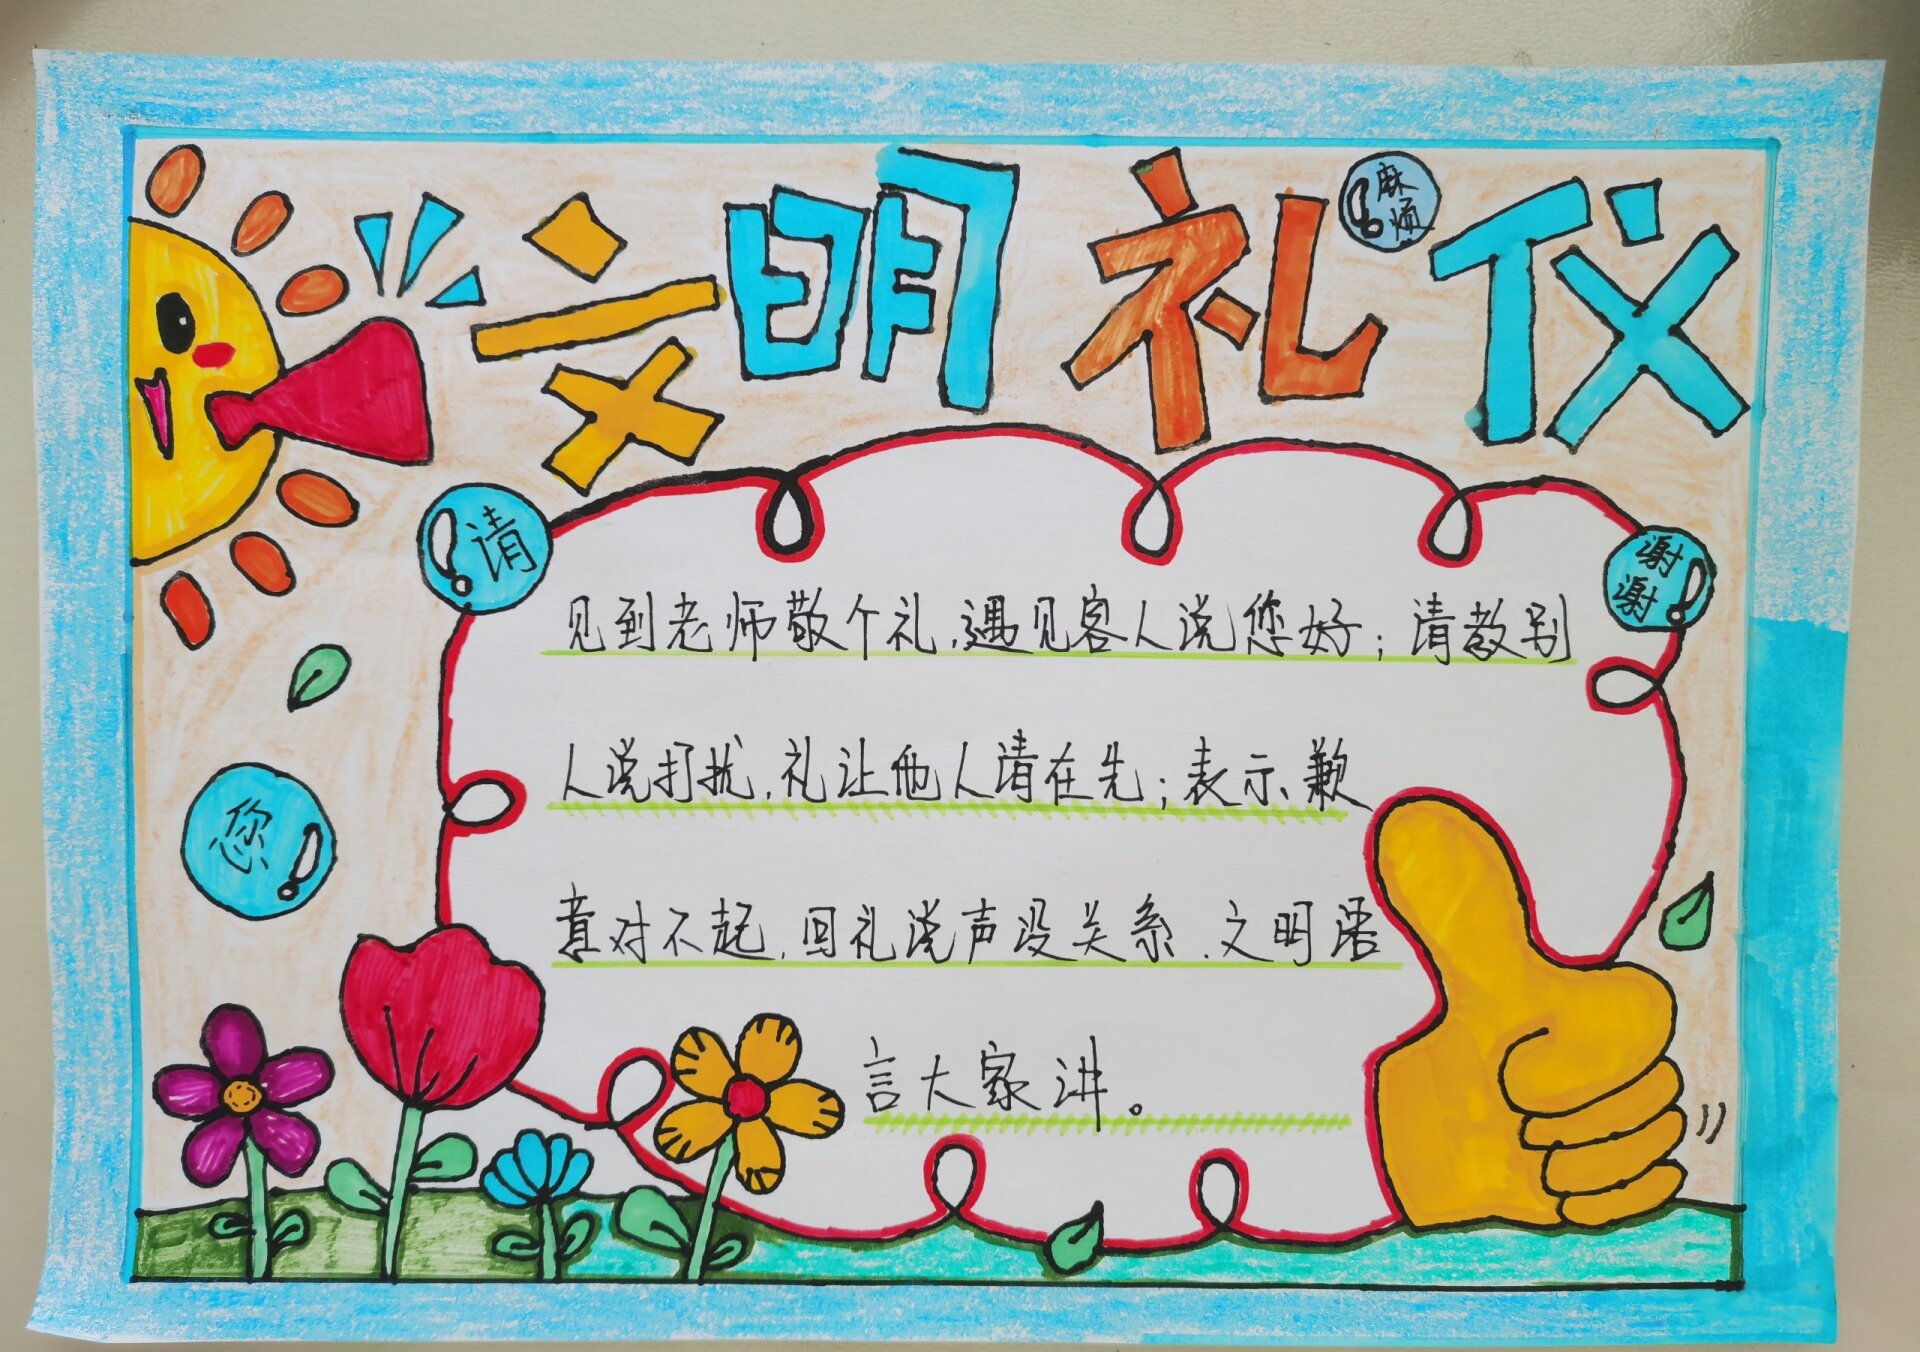 文明礼仪
麻烦
请
谢谢
见到老师敬个礼,遇见客人说您好;请教别
人说打扰,礼让他人请在先;表示歉
意对不起,回礼说声没关系.文明语
言大家讲。
您